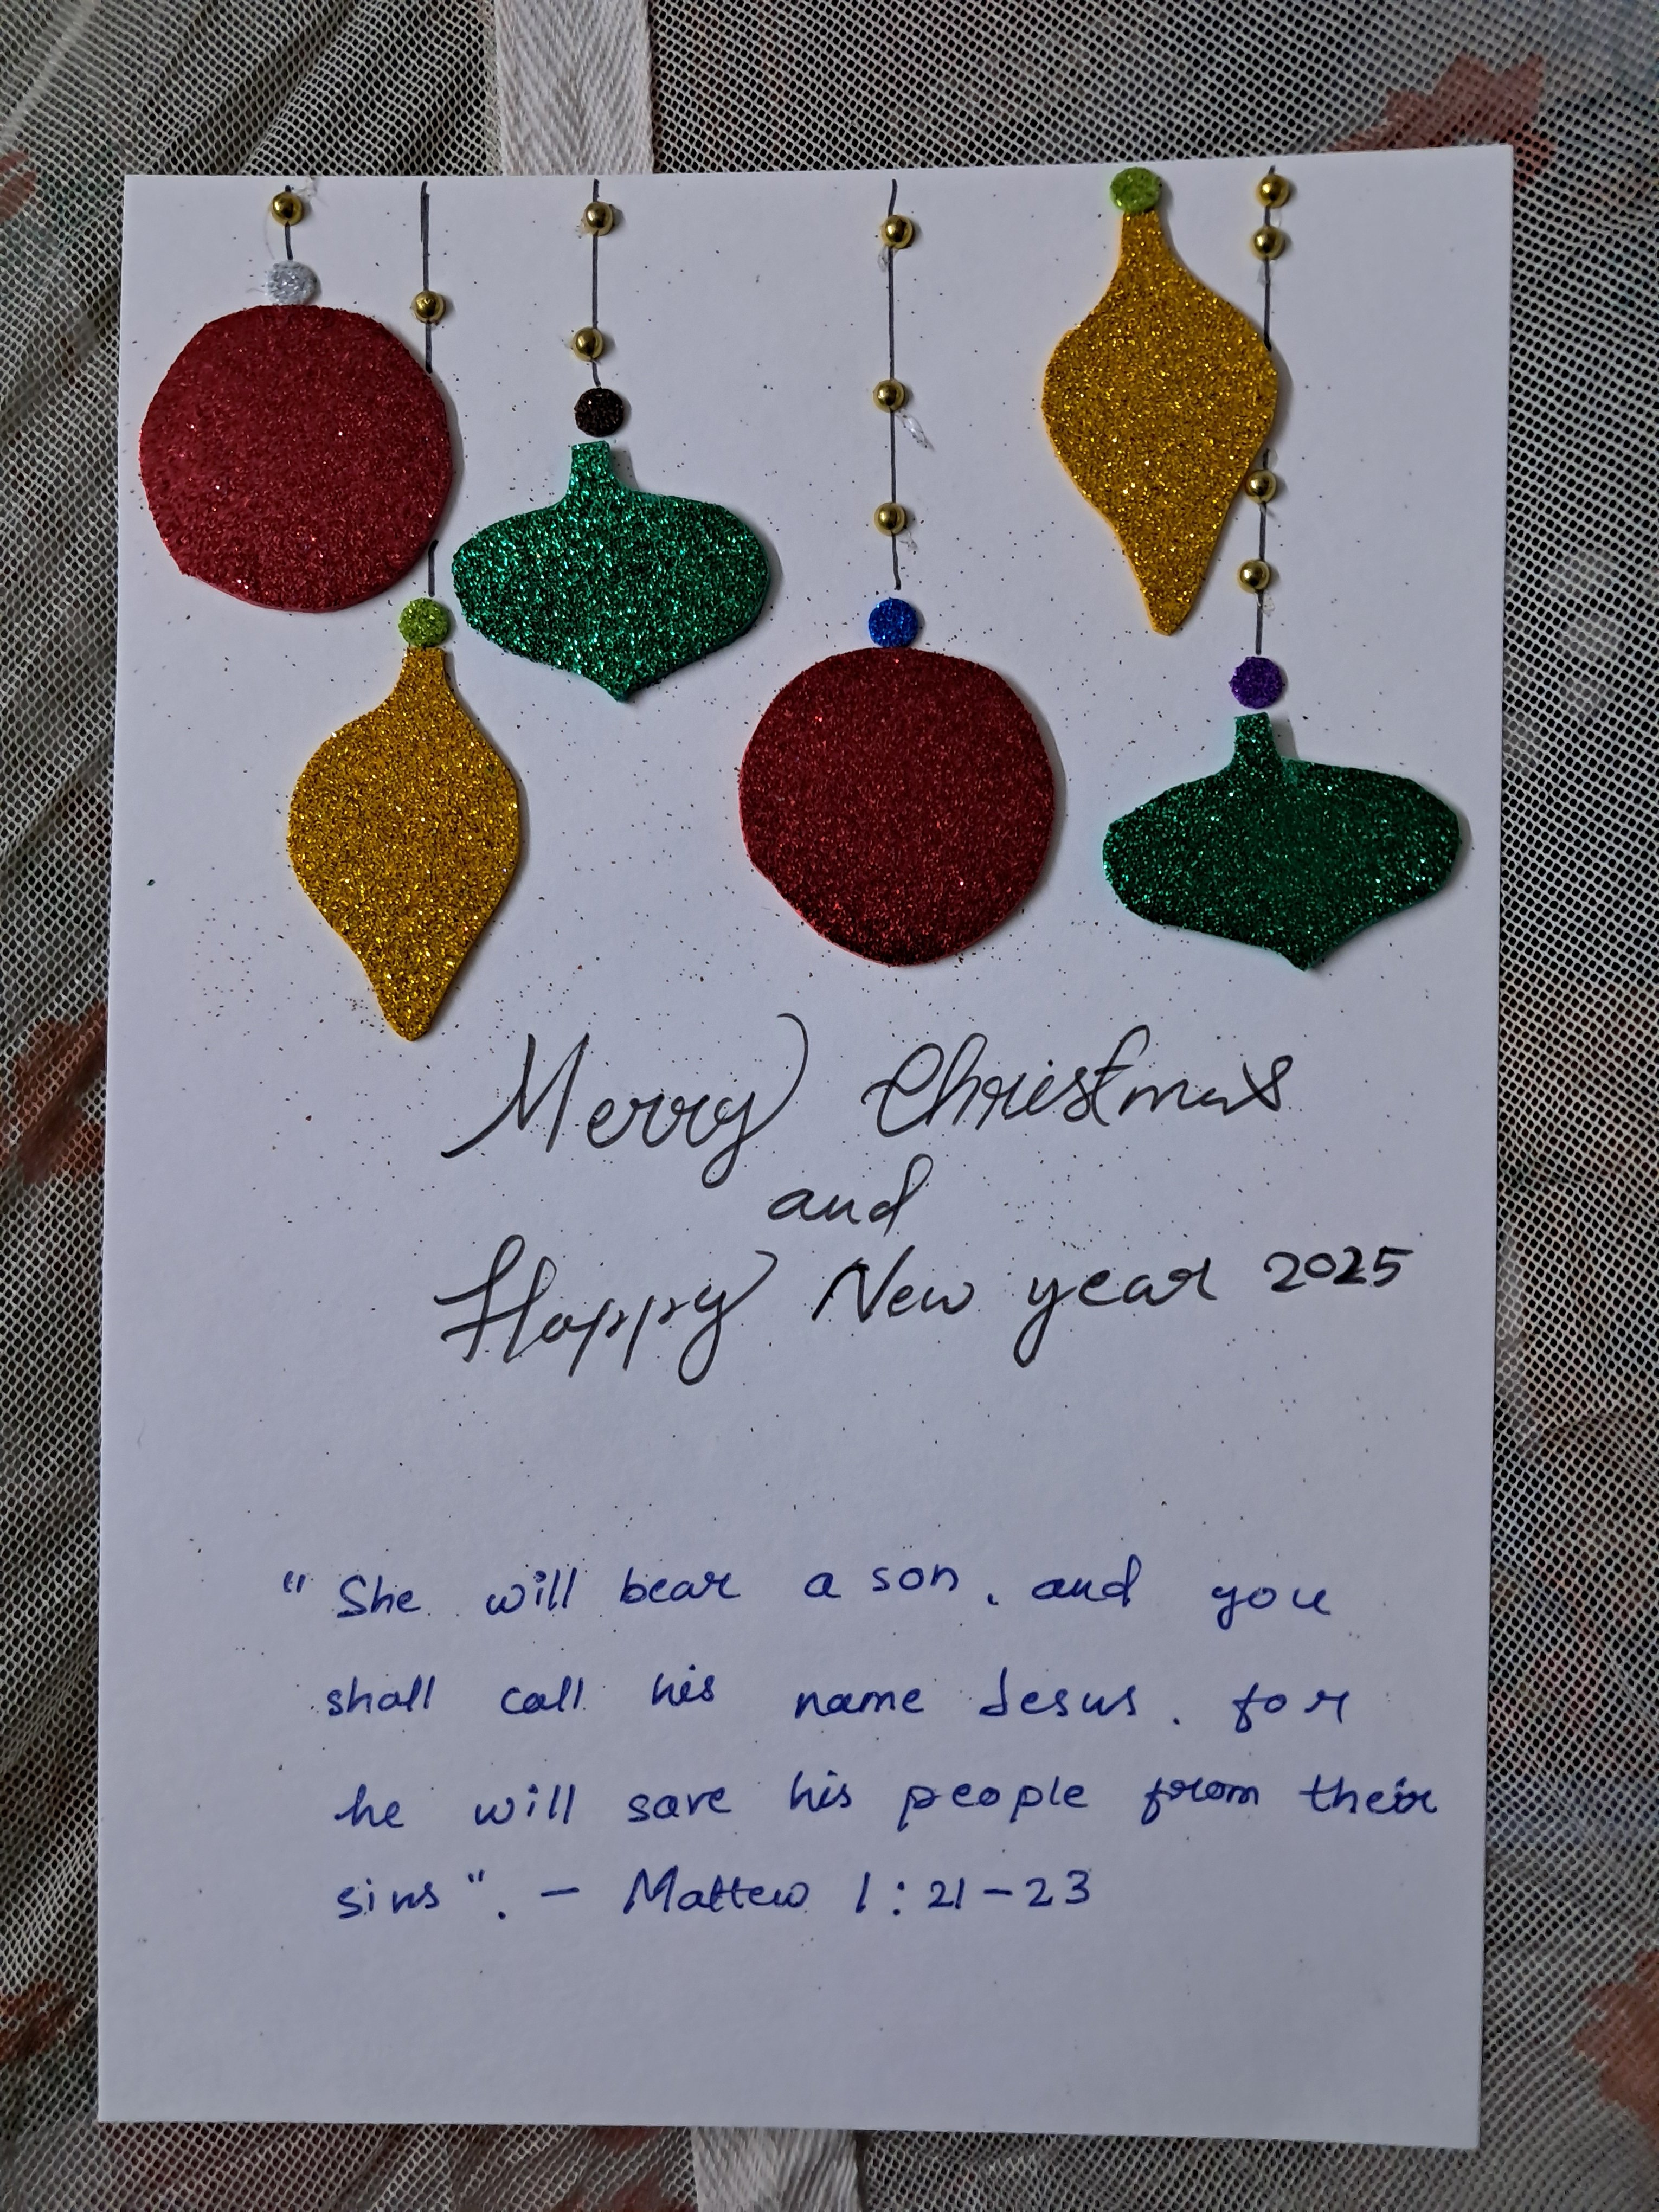 Merry Christmas
and
Happy New year 2025
"She will bear a son, and you
shall call his name Jesus. for
he will save his people from their
sins". - Mattew 1:21-23